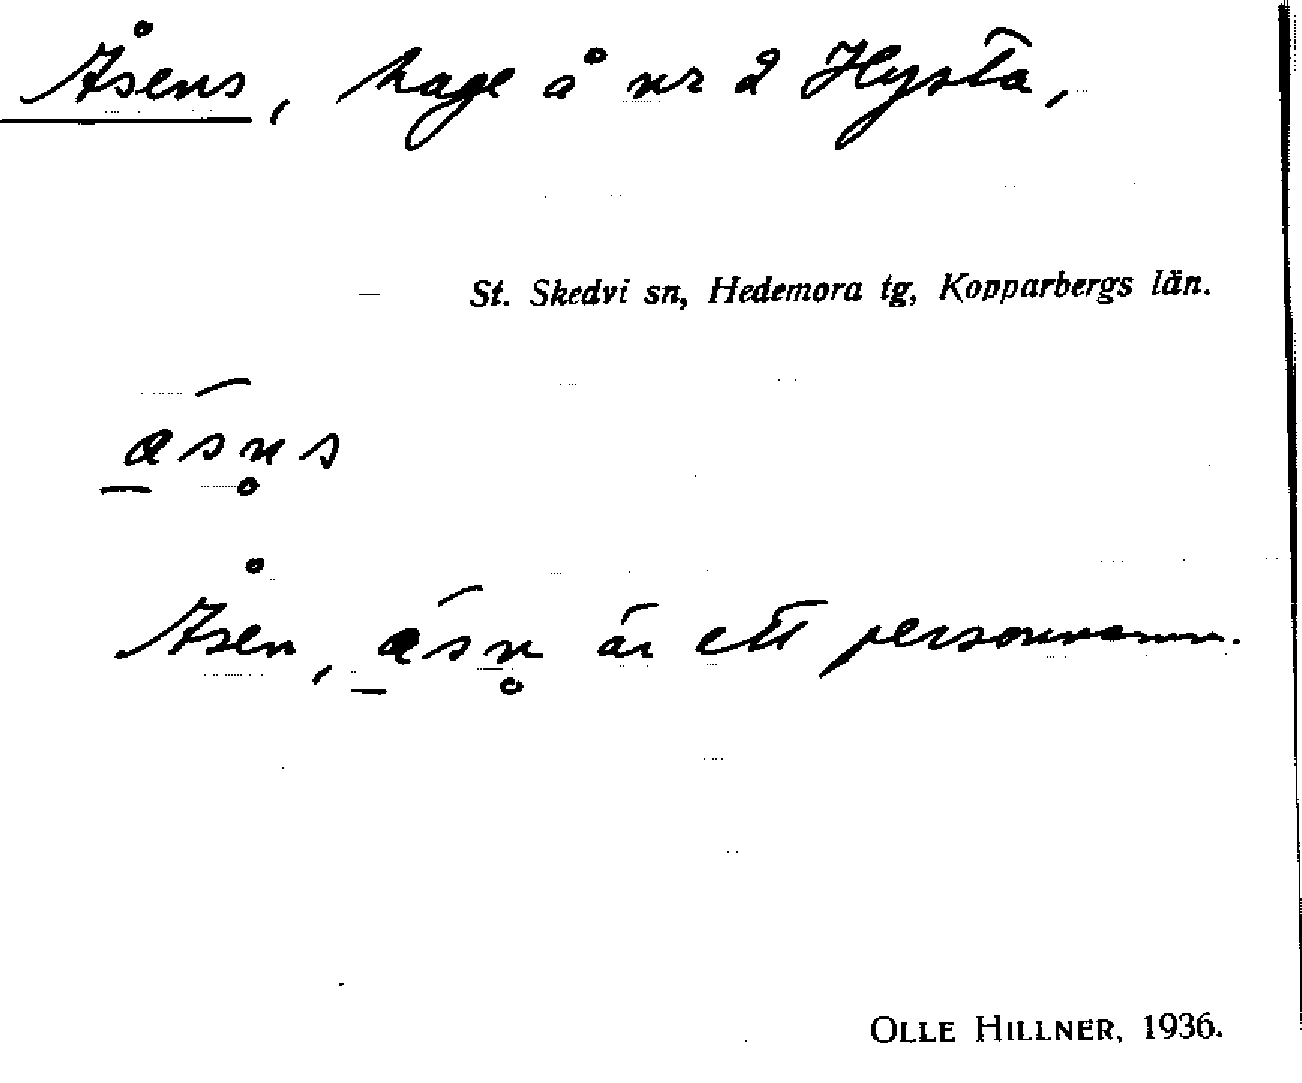 Åsens, hage å nr 2 Hysta,
St. Skedvi sn, Hedemora tg, Kopparbergs län.
a̲sn̥s
Åsen, a̲sn̥ är ett personnamn.
OLLE HILLNER, 1936.